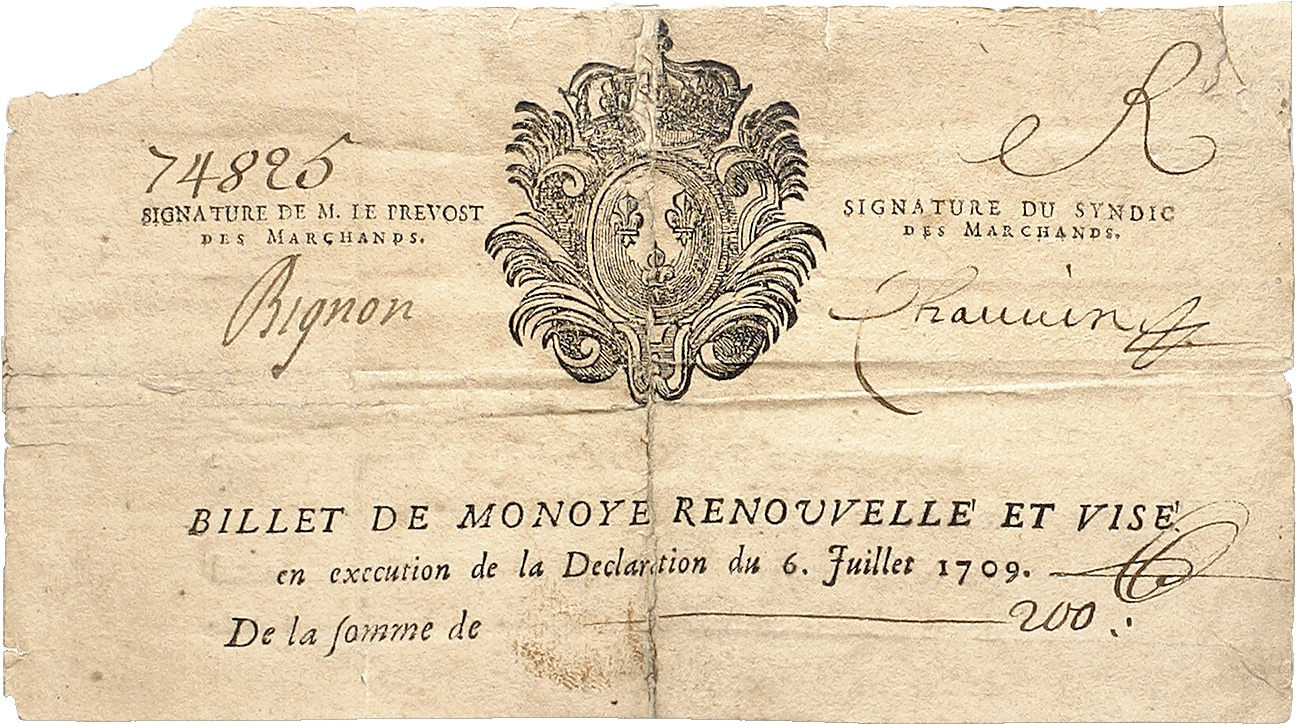 R
74825
SIGNATURE DE M. LE PREVOST
DES MARCHANDS.
SIGNATURE DU SYNDIC
DES MARCHANDS.
Bignon
Chauvin
BILLET DE MONOYE RENOUVELLE' ET VISE'
en execution de la Declaration du 6. Juillet 1709.
De la ſomme de 200